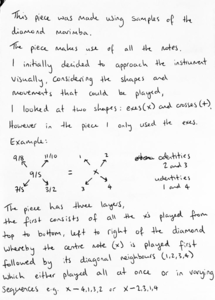 This piece was made using samples of the
diamond marimba.
The piece makes use of all the notes.
I initially decided to approach the instrument
visually, considering the shapes and
movements that could be played,
I looked at two shapes: exes(x) and crosses(+).
However in the piece I only used the exes.
Example:
9/8 11/10 1 2
9/5 = x
7/5 3/2 3 4
odentities
2 and 3
udentities
1 and 4
The piece has three layers,
the first consists of all the xs played from
top to bottom, left to right of the diamond
whereby the centre note (x) is played first
followed by its diagonal neighbours (1,2,3,4)
which either played all at once or in varying
sequences e.g. x-4,1,3,2 or x-2,3,1,4